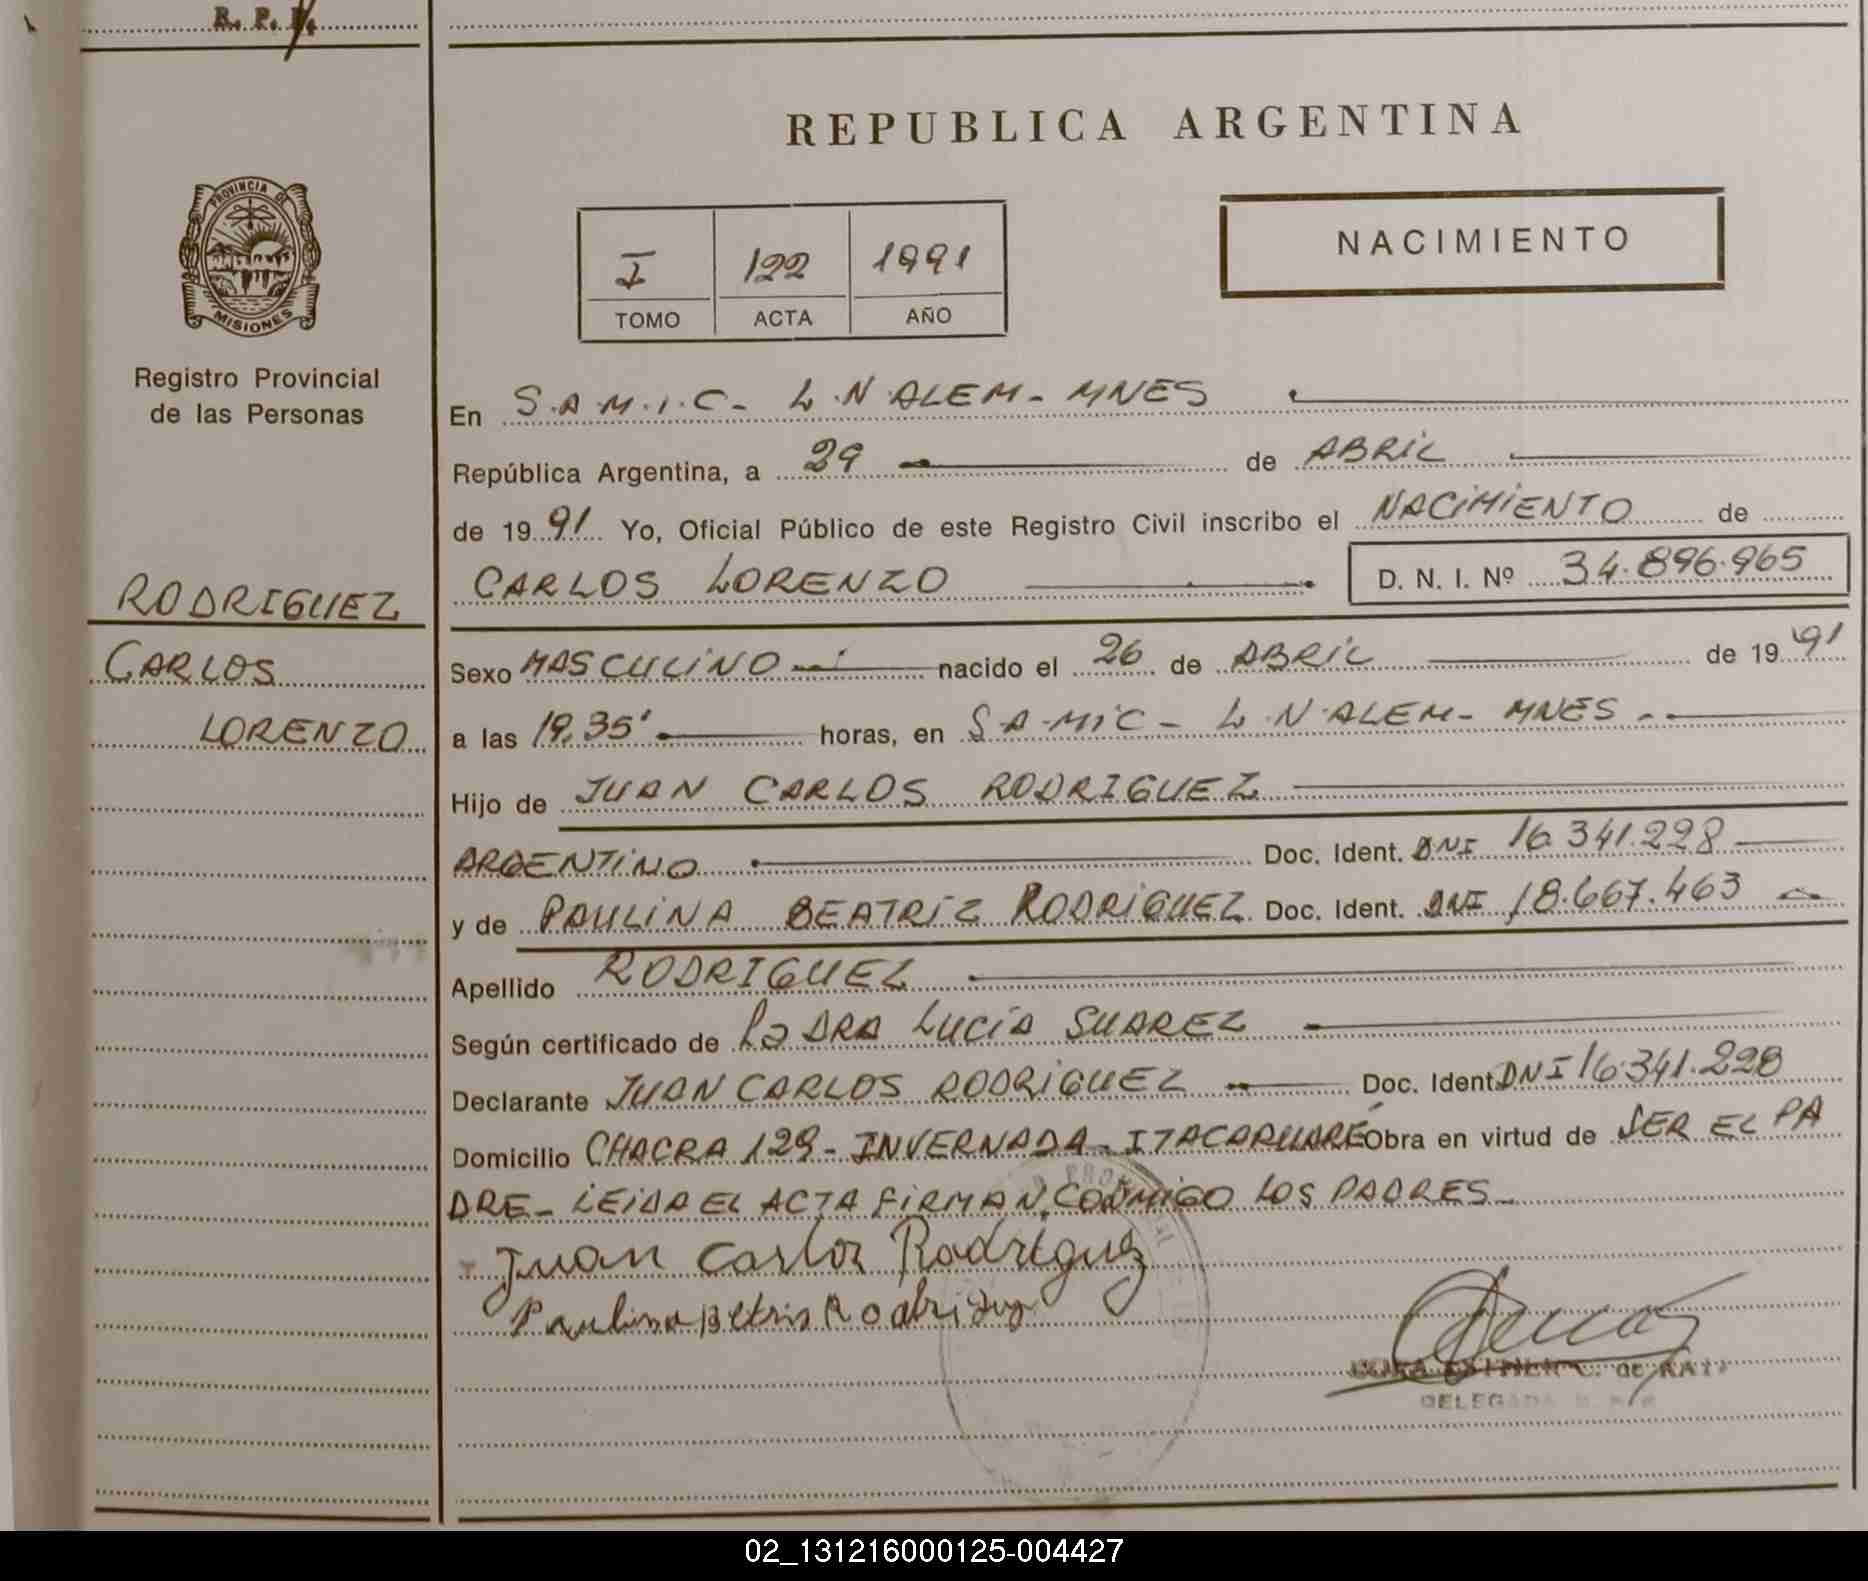 R. P. P.
REPUBLICA ARGENTINA
PROVINCIA DE
MISIONES
Registro Provincial
de las Personas
I 122 1991
TOMO ACTA AÑO
NACIMIENTO
En S.A.M.I.C- L.N.ALEM- MNES
República Argentina, a 29 de ABRIL
de 1991 Yo, Oficial Público de este Registro Civil inscribo el NACIMIENTO de
CARLOS LORENZO D. N. I. Nº 34.896.965
RODRIGUEZ
CARLOS
LORENZO
Sexo MASCULINO nacido el 26 de ABRIL de 1991
a las 19,35' horas, en S.A.MIC- L.N.ALEM- MNES-
Hijo de JUAN CARLOS RODRIGUEZ
ARGENTINO Doc. Ident. DNI 16.341.228
y de PAULINA BEATRIZ RODRIGUEZ Doc. Ident. DNI 18.667.463
Apellido RODRIGUEZ
Según certificado de La DRA LUCIA SUAREZ
Declarante JUAN CARLOS RODRIGUEZ Doc. Ident. DNI 16.341.228
Domicilio CHACRA 129- INVERNADA- ITACARUARÉ Obra en virtud de SER EL PA
DRE- LEIDA EL ACTA FIRMAN CONMIGO LOS PADRES-
Juan Carlos Rodriguez
Paulina Rodriguez
ESTHER C. de
DELEGADA
02_131216000125-004427